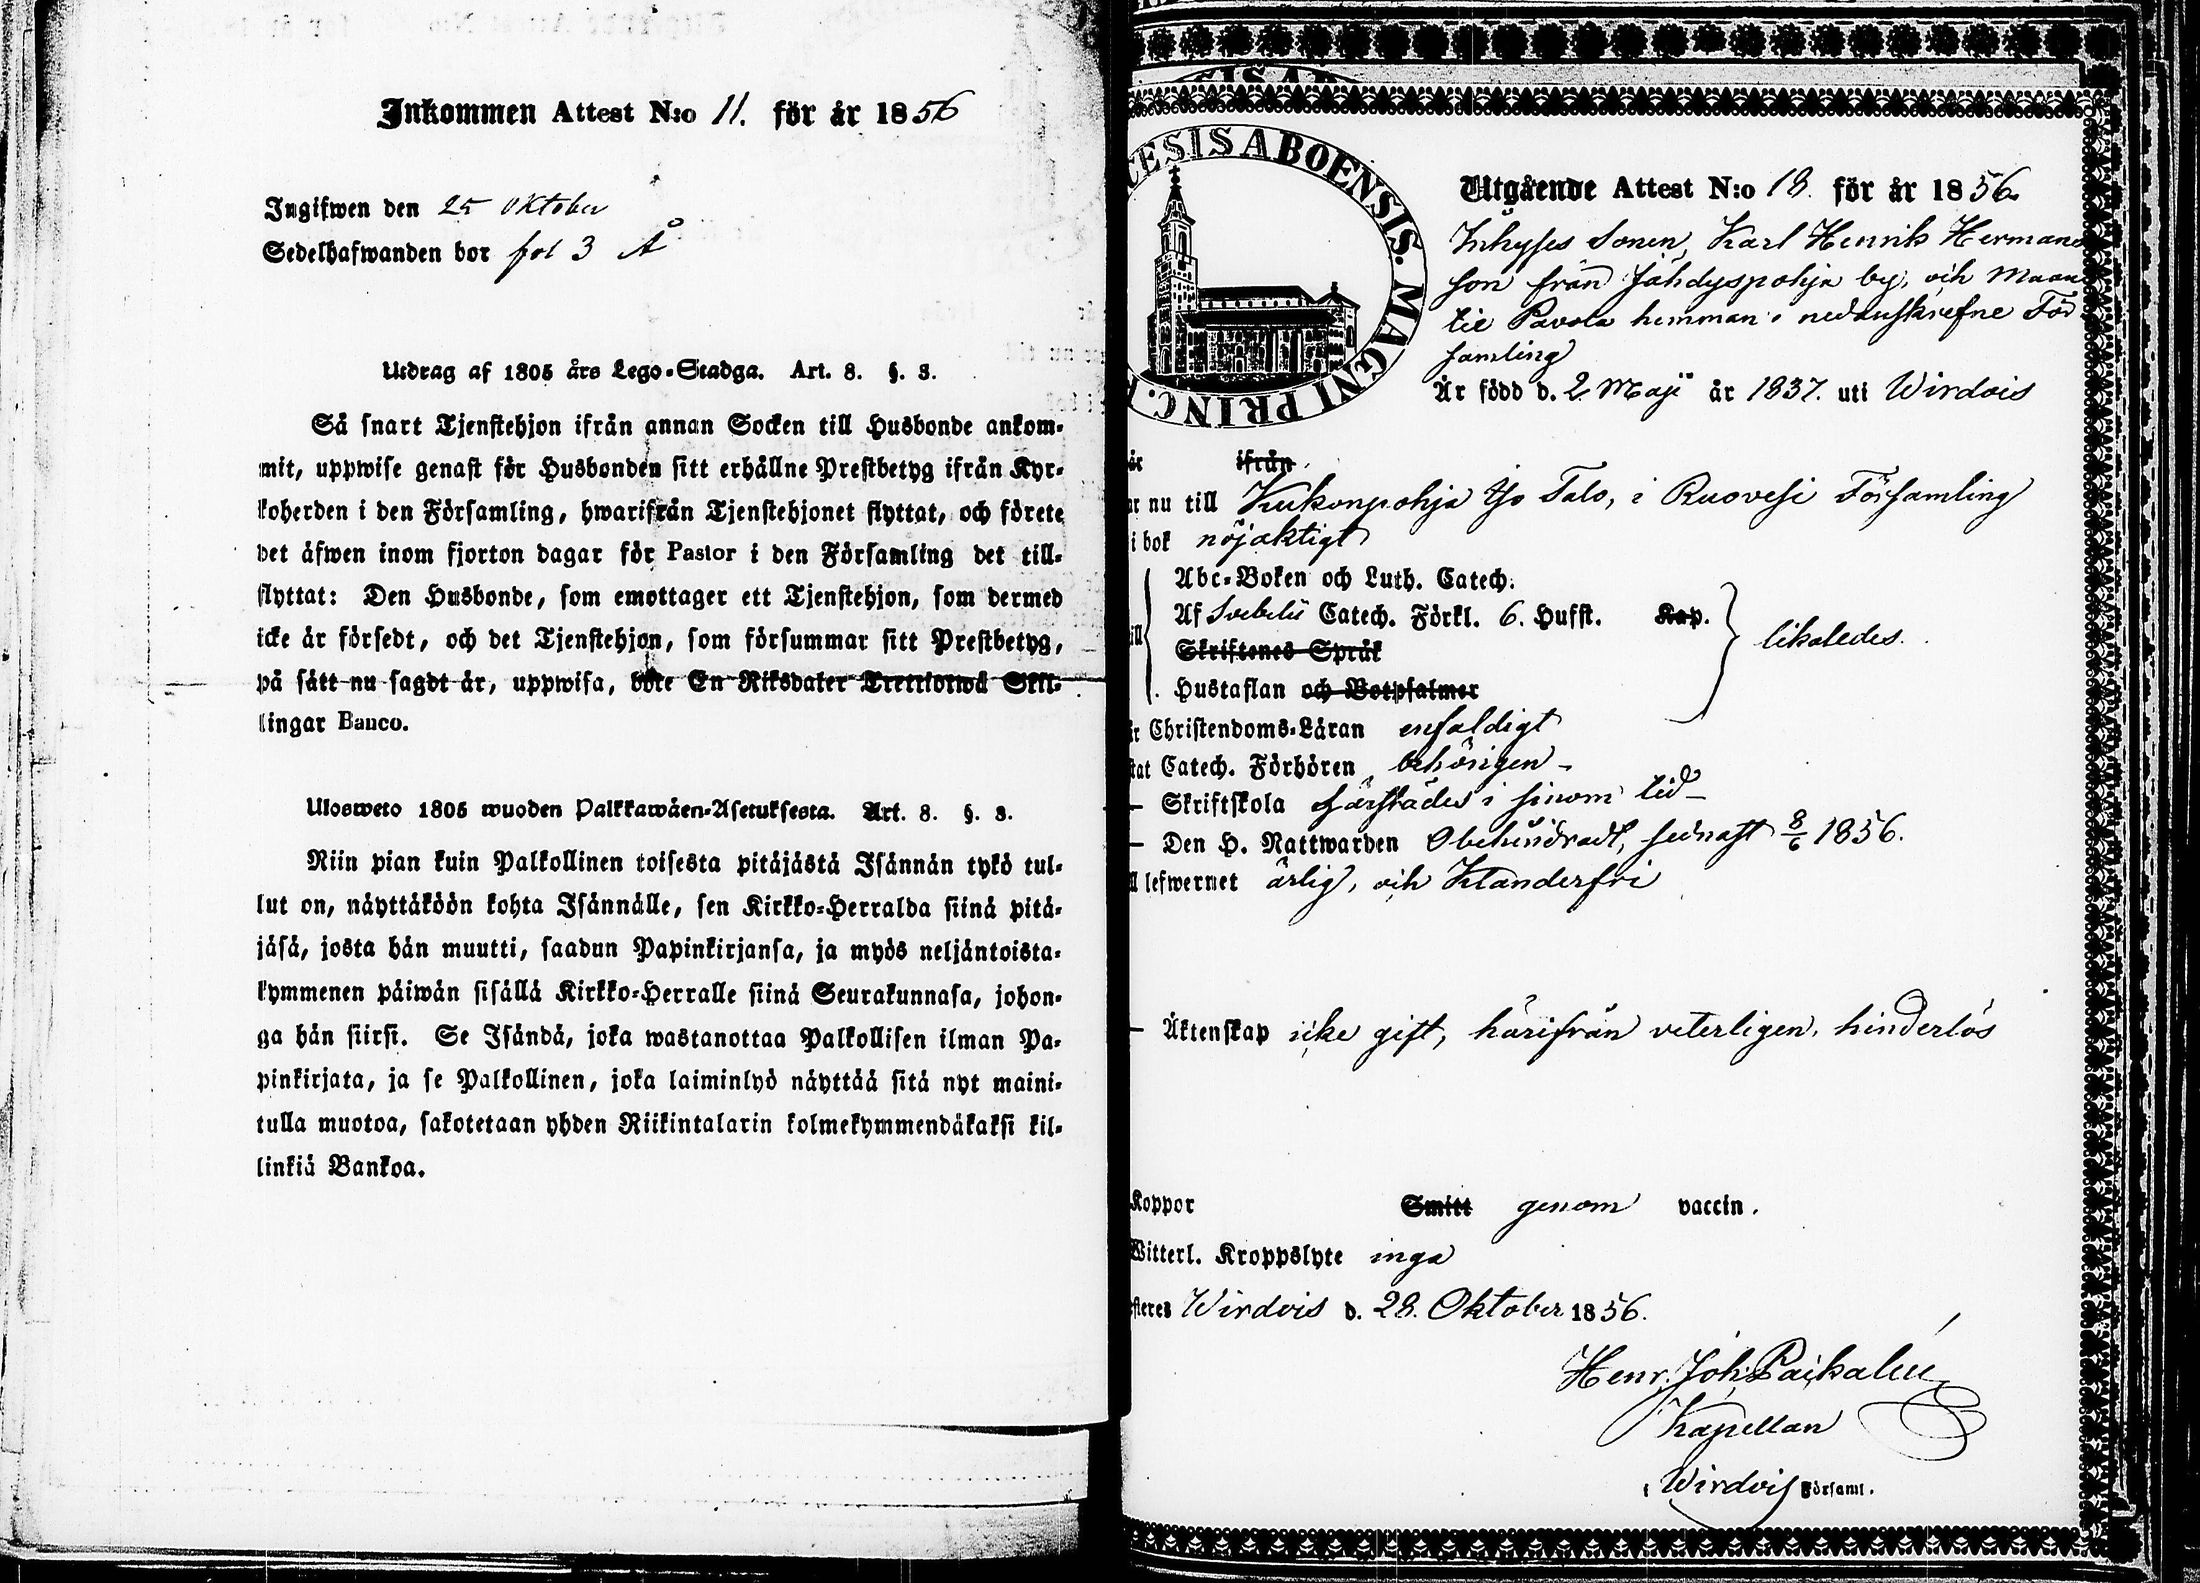 Inkommen Attest N:o 11. för år 1856
Ingifwen den 25 Oktober
Sedelhafwanden bor fol 3 Å
Utdrag af 1805 års Lego-Stadga. Art. 8. §. 3.
Så snart Tjenstehjon ifrån annan Socken till Husbonde ankom-
mit, uppwise genast för Husbonden sitt erhållne Prestbetyg ifrån Kyr-
koherden i den Församling, hwarifrån Tjenstehjonet flyttat, och förete
det äfwen inom fjorton dagar för Pastor i den Församling det till-
flyttat: Den Husbonde, som emottager ett Tjenstehjon, som dermed
icke är försedt, och det Tjenstehjon, som försummar sitt Prestbetyg,
på sätt nu sagdt är, uppwisa, böte En Riksdaler Trettiotwå Skil-
lingar Banco.
Ulosweto 1805 wuoden Palkkawäen-Asetuksesta. Art. 8. §. 3.
Niin pian kuin Palkollinen toisesta pitäjästä Isännän tykö tul-
lut on, näyttäköön kohta Isännälle, sen Kirkko-Herralda siinä pitä-
jäsä, josta hän muutti, saadun Papinkirjansa, ja myös neljäntoista-
kymmenen päiwän sisällä Kirkko-Herralle siinä Seurakunnasa, johon-
ga hän siirsi. Se Isändä, joka wastanottaa Palkollisen ilman Pa-
pinkirjata, ja se Palkollinen, joka laiminlyö näyttää sitä nyt maini-
tulla muotoa, sakotetaan yhden Riikintalarin kolmekymmendäkaksi kil-
linkiä Bankoa.
ESIS ABOENSIS. MAGNI PRINC.
Utgående Attest N:o 18. för år 1856.
Inhyses Sonen, Karl Henrik Hermans
son från Jähdyspohja by, och Maan
tie Pavola hemman i nedanskrefne För
samling
Är född d. 2 Maji år 1837. uti Wirdois
är ifrån
ar nu till Kukonpohja Talo, i Ruovesi Församling
i bok nöjaktigt
Abc-Boken och Luth. Catech.
Af Svebelii Catech. Förkl. 6. Hufst. Kap.
Skriftenes Språk
likaledes.
Hustaflan och Botpsalmer
är Christendoms-Läran enfaldigt
tat Catech. Förhören behörigen –
– Skriftskola härstädes i sinom tid –
– Den H. Nattwarden Obehindradt, sednast 8/6 1856.
ll lefwernet ärlig, och Klanderfri
– Äktenskap icke gift, härifrån veterligen, hinderlös
Koppor Smitt genom vaccin.
Witterl. Kroppslyte inga
esteres Wirdois d. 28. Oktober 1856.
Henr. Joh:
Kapellan
i Wirdois Församl.